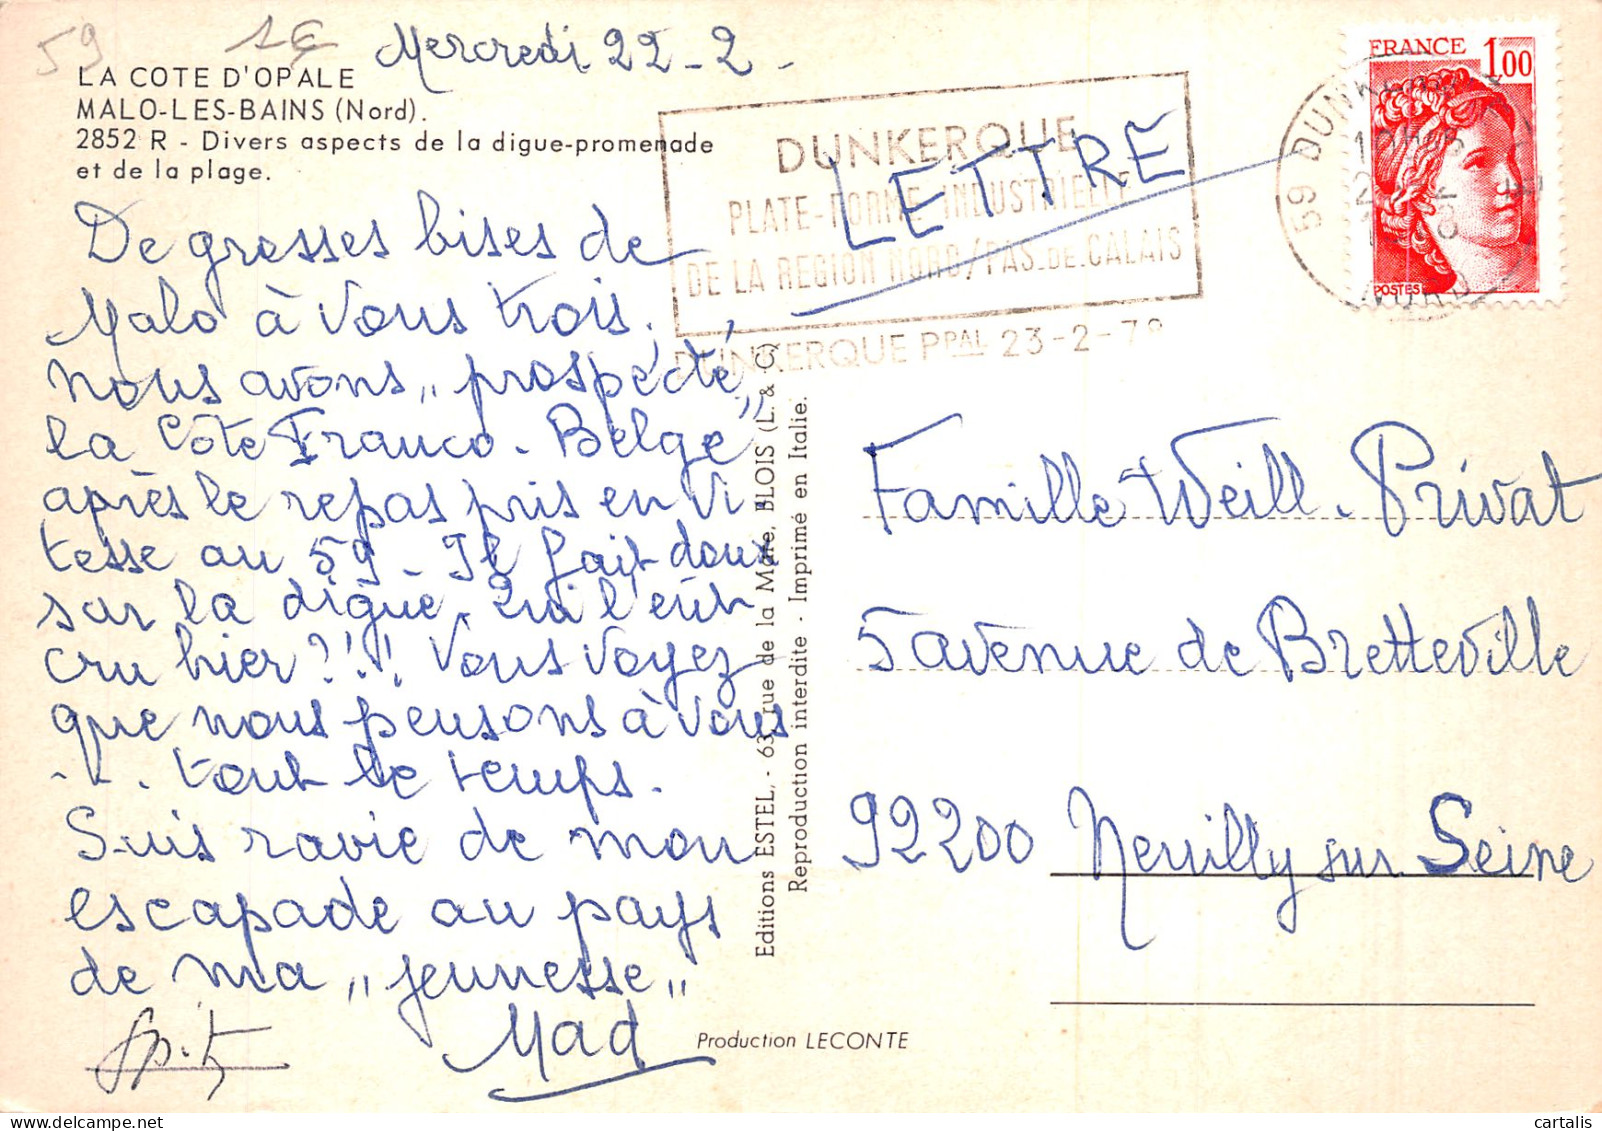 59
1€
Mercredi 22-2-
LA COTE D'OPALE
MALO-LES-BAINS (Nord).
2852 R - Divers aspects de la digue-promenade
et de la plage.
De grosses bises de
Malo à vous trois.
Nous avons „prospecté„
la Côte Franco-Belge
après le repas pris en vi
tesse au 59 - Il fait doux
sur la digue. Qui l'eût
cru hier ?!!! Vous voyez
que nous pensons à vous
tout le temps.
Suis ravie de mon
escapade au pays
de ma „jeunesse„
Mad
DUNKERQUE
PLATE-FORME INDUSTRIELLE
DE LA REGION NORD/PAS-DE-CALAIS
DUNKERQUE PPAL 23-2-78
LETTRE
59 DUNKERQUE
NORD
FRANCE 1,00
POSTES
Editions ESTEL, - 63, rue de la Mare, BLOIS (L. & C)
Reproduction interdite - Imprimé en Italie.
Famille Weill-Privat
5 avenue de Bretteville
92200 Neuilly sur Seine
Production LECONTE
cartalis
delcampe.net